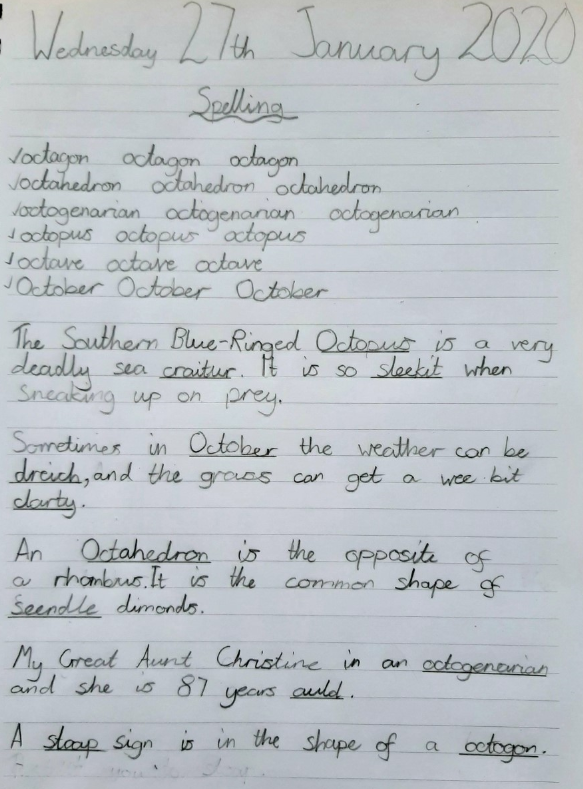 Wednesday 27th January 2020
Spelling
√octagon octagon octagon
√octahedron octahedron octahedron
√octogenarian octogenarian octogenarian
√octopus octopus octopus
√octave octave octave
√October October October
The Southern Blue-Ringed Octopus is a very
deadly sea craitur. It is so sleekit when
sneaking up on prey.
Sometimes in October the weather can be
dreich, and the grass can get a wee bit
clarty.
An Octahedron is the opposite of
a rhombus. It is the common shape of
seendle dimonds.
My Great Aunt Christine in an octogenarian
and she is 87 years auld.
A stap sign is in the shape of a octogon.